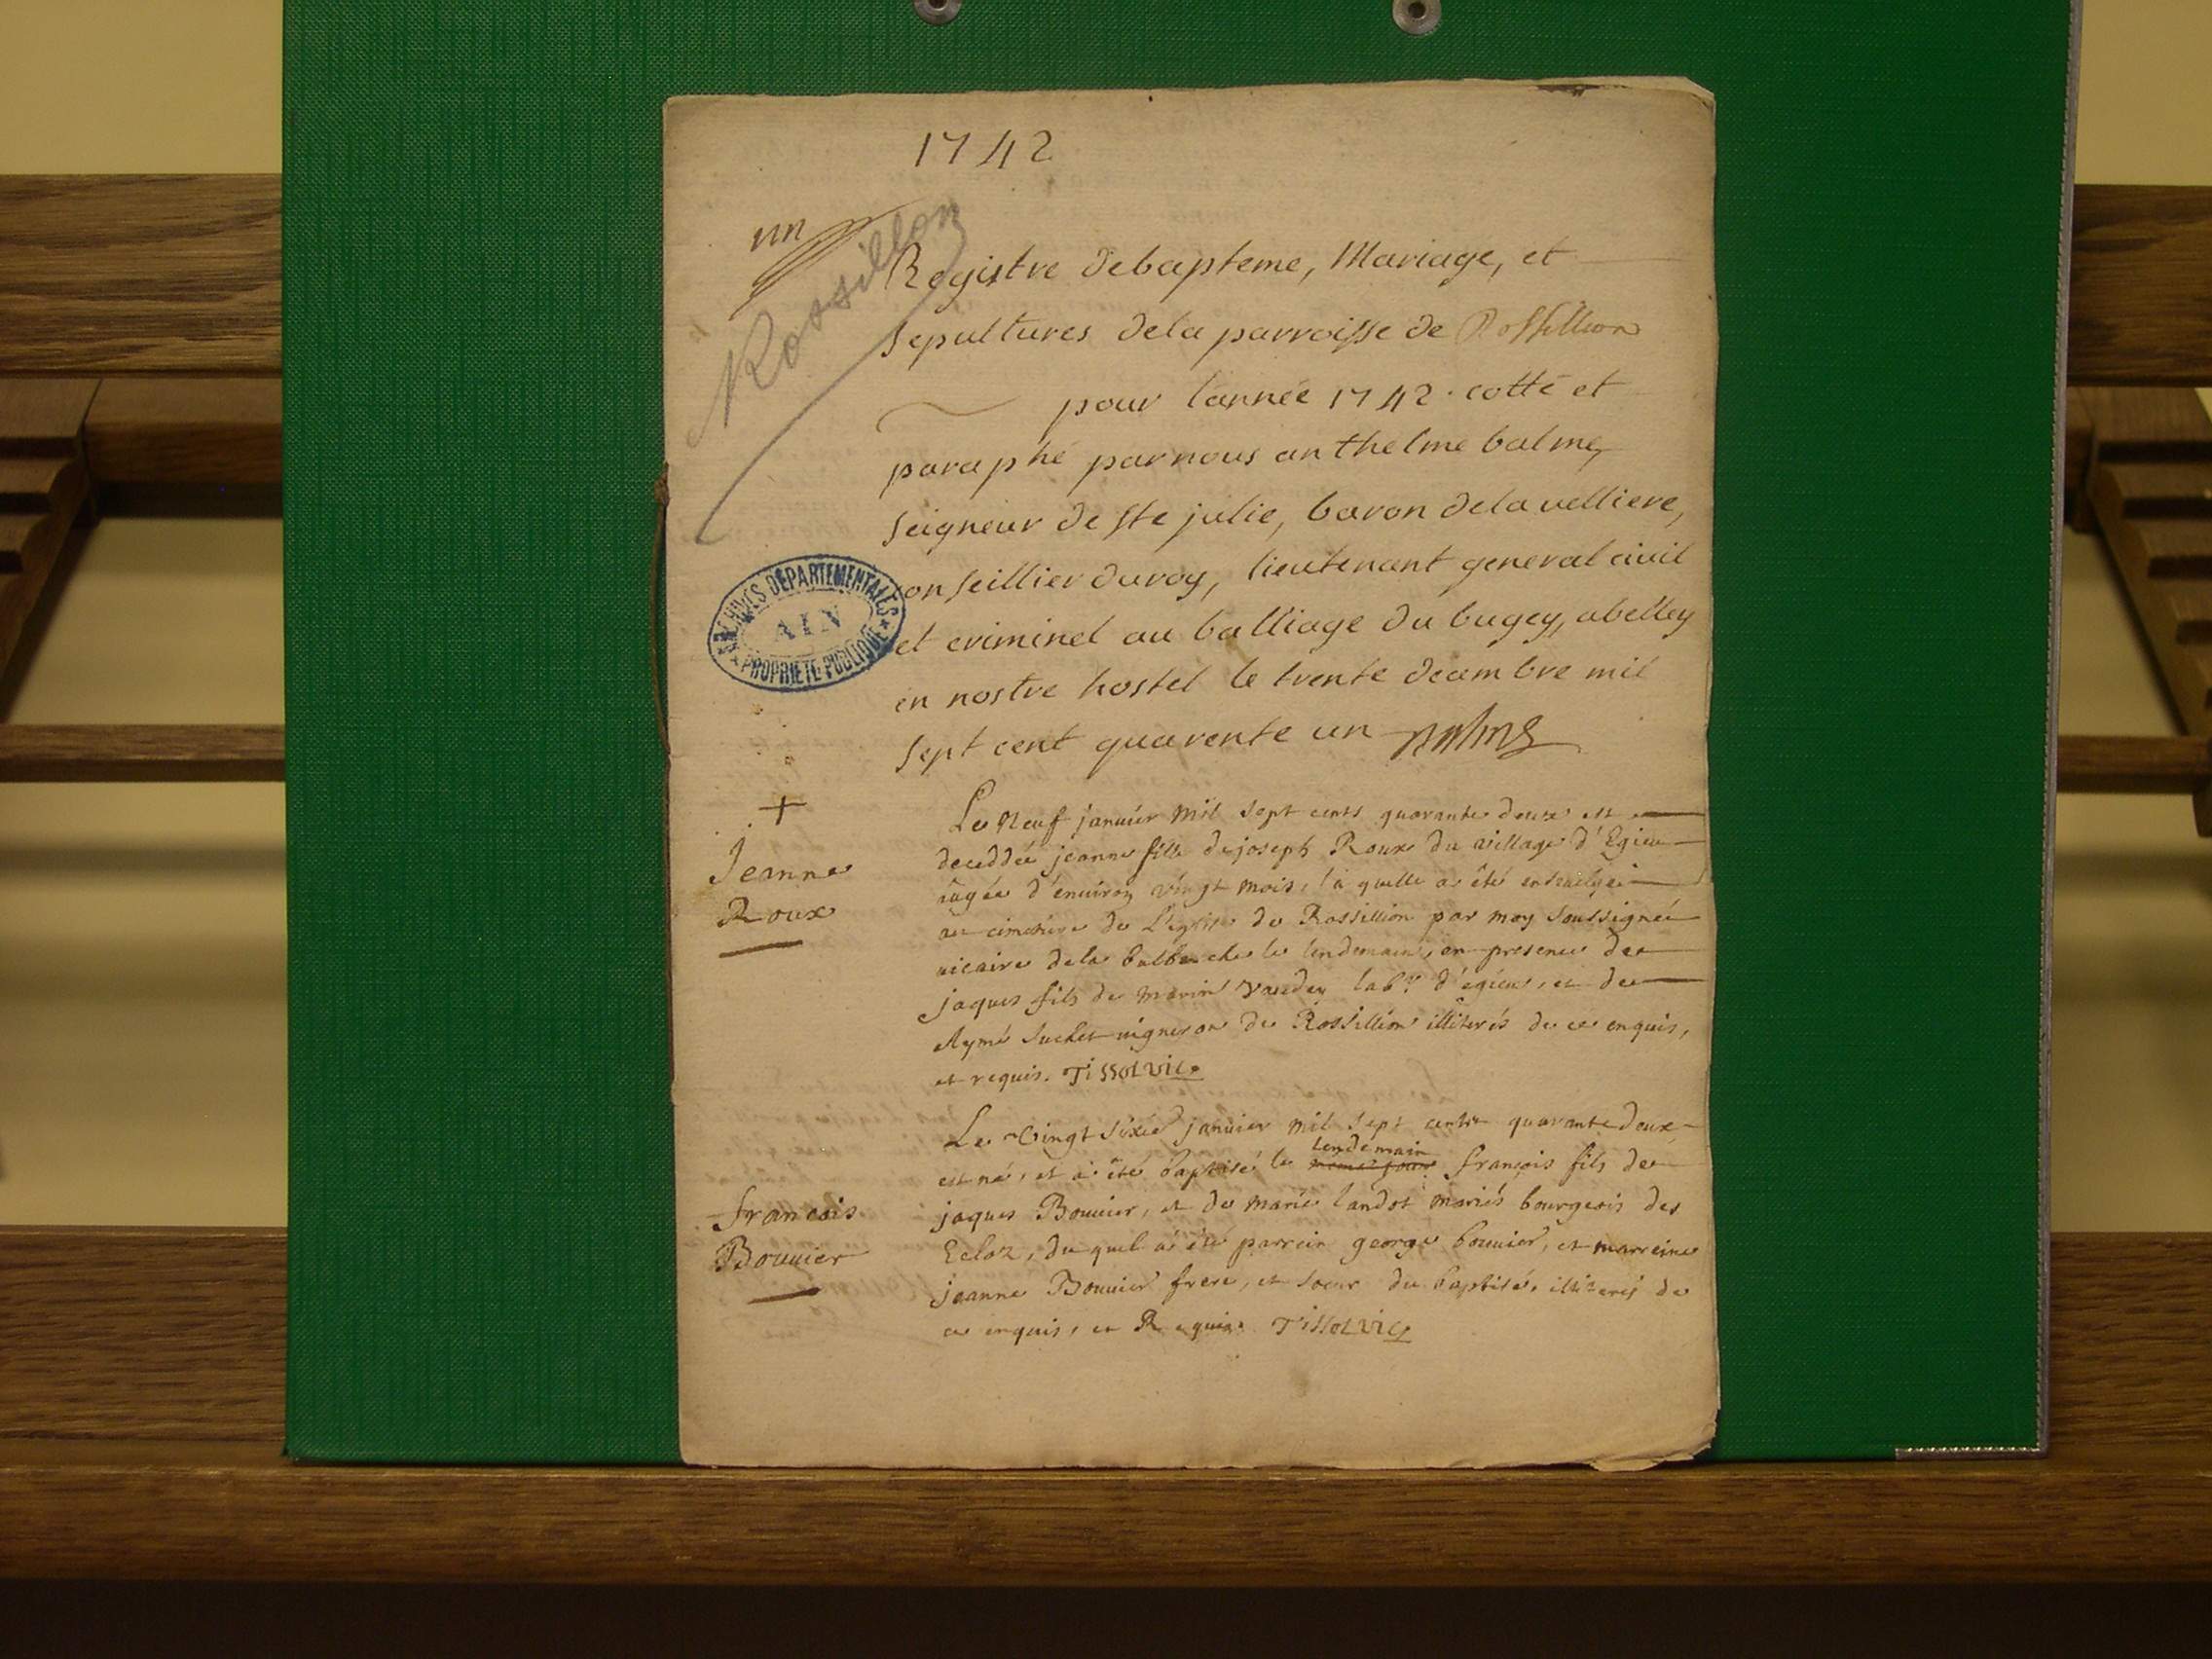 1742
un
Rossillon
Registre debapteme, Mariage, et
sepultures dela parroisse de Rossillion
pour l'année 1742. cotté et
paraphé par nous anthelme balme,
seigneur de ste julie, baron dela velliere,
conseillier du roy, lieutenant general civil
et criminel au balliage du bugey, abelley
en nostre hostel le trente decembre mil
sept cent quarente un balme
ARCHIVES DÉPARTEMENTALES
AIN
PROPRIÉTÉ PUBLIQUE
+
Jeanne
Roux
Le Neuf janvier mil sept cents quarante deux est
deceddée jeanne fille de joseph Roux du village d'Egieu
âagée d'environ vingt mois, laquelle a été
au cimetiere de L'eglise de Rossillion par moy soussigné
vicaire dela balbe le lendemain, en presence de
jaques fils de marin lab.r d'égieu, et de
Aymé Suchet vigneron de Rossillion illiterés de ce enquis,
et requis. Tissot vic.
françois
Bouvier
Le Vingt sixie janvier mil sept cents quarante deux
est né, et a été baptisé le lendemain françois fils de
jaques Bouvier, et de marie landot mariés bourgeois des
Ecloz, du quel a été parrein george bouvier, et marreine
jeanne Bouvier frere, et soeur du baptisé, illiterés de
ce enquis, et Requis. Tissot vic.